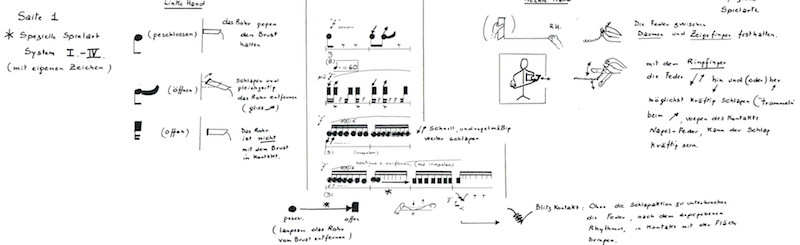 Linke Hand
Saite 1
* Spezielle Spielart
System I. - IV.
(mit eigenen Zeichen)
(geschlossen)
das Rohr gegen
den Brust
halten
(öffnen)
Schlagen und
gleichzeitig
das Rohr entfernen
(gliss ↗)
(offen)
Das Rohr
ist nicht
mit dem Brust
in Kontakt.
♩ = 60
(irregolare)
↓↑ Schnell, unregelmäßig
weiter schlagen
continuo e uniforme, (ma irregolare)
(5) *
gesch. offen
(langsam das Rohr
vom Brust entfernen)
R.H.
Spielarte
Die Feder zwischen
Daumen und Zeigefinger festhalten.
mit dem Ringfinger
die Feder ↓↑ hin und (oder) her
möglichst kräftig schlagen ("trommeln
beim ↗, wegen des Kontakts
Nagel-Feder, kann der Schlag
kräftig sein.
Blitzkontakt: Ohne die Schlagaktion zu unterbrechen
die Feder, nach dem angegebenen
Rhythmus, in Kontakt mit der Fläche
bringen.